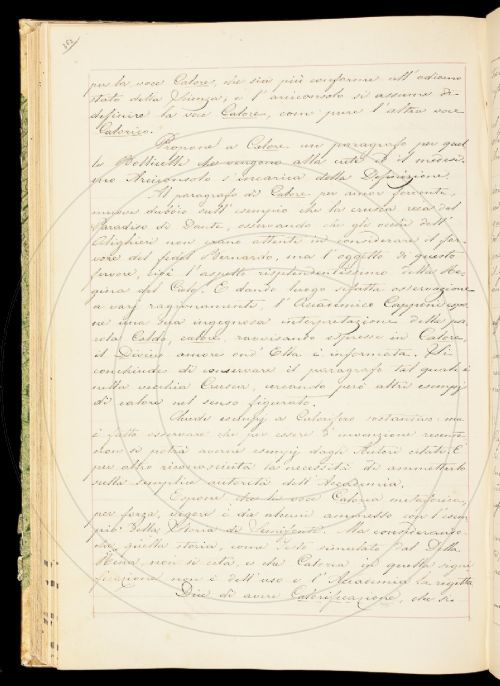 per la voce Calore, che sia più conforme all'odierno
stato della Scienza, e l'arciconsolo si assume di
definire la voce Calore, come pure l'altra voce
Calorico.
Propone a Calore un paragrafo per quel
le Bollicelle che vengono alla cute e il medesi
mo Arciconsolo s'incarica della Definizione.
Al paragrafo di Calore per amor fervente,
muove dubbio sull'esempio che la crusca reca del
Paradiso di Dante, osservando che gli occhi dell'
Alighieri non erano attenti in considerare il fer
vore del fedel Bernardo, ma l'oggetto di questo
fervore, cioè l'aspetto risplendentissimo della Re
gina del Cielo. E dando luogo siffatta osservazione
a varj ragionamenti, l'Accademico Capponi espo
ne una sua ingegnosa interpretazione della pa
rola Caldo, calore, ravvisando espresso in Calore,
il Divino amore ond'Ella è informata. Si
conchiude di conservare il paragrafo tal quale è
nella vecchia Crusca, cercando però altri esempj
di calore nel senso figurato.
Chiede esempj a Calorifero sostantivo, ma
è fatto osservare che per essere d'invenzione recente
non si potrà averne esempj dagli Autori citati. È
per altro riconosciuta la necessità di ammetterlo
sulla semplice autorità dell'Accademia.
Espone, che la voce Caloria metaforica,
per forza, vigore è da alcuni ammesso con l'esem
pio della Storia di Semifonte. Ma considerando
che questa storia, come Testo simulato dal Della
Rena, non si cita, e che Caloria in questa signi
ficazione non è dell'uso e l'Accademia la rigetta
Dice di avere Calorificazione, che si